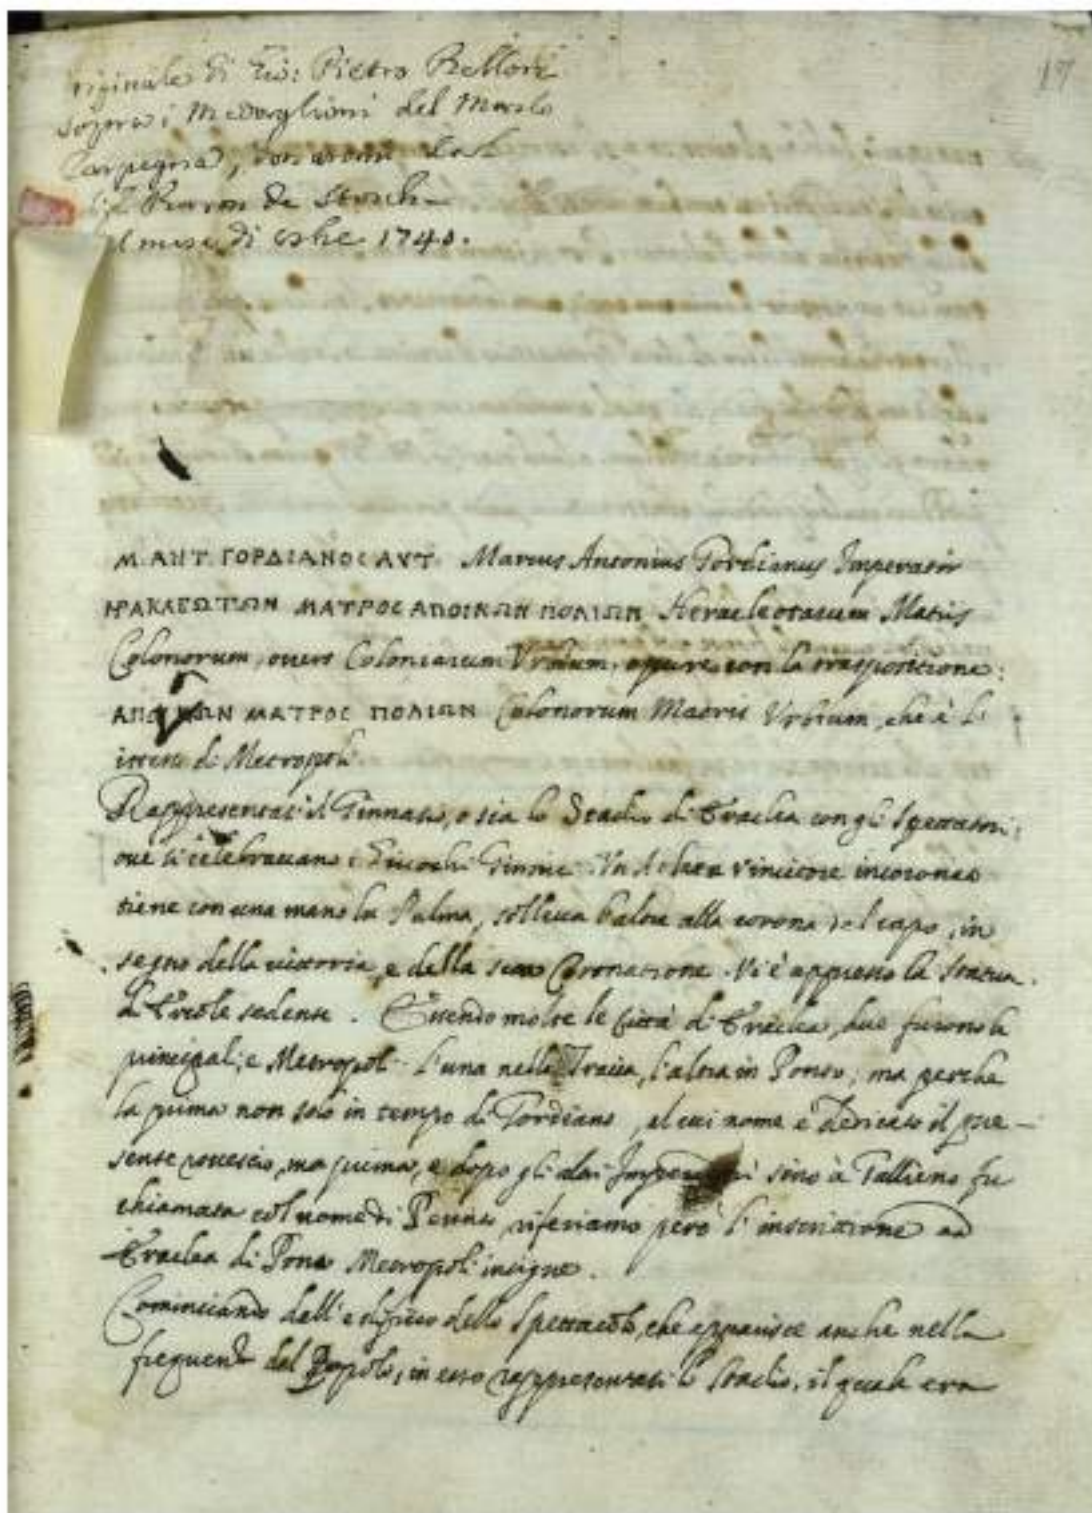 17
riginale di Gio: Pietro Bellori
sopra i Medaglioni del
Carpegna, donatomi dal
Baron de Stosch
il mese di 1740.
Μ. ΑΝΤ. ΓΟΡΔΙΑΝΟC ΑΥΤ. Marcus Antonius Gordianus Imperator
ΗΡΑΚΛΕΩΤΩΝ ΜΑΤΡΟC ΑΠΟΙΚΩΝ ΠΟΛΙΩΝ Heracleotarum Matris
Colonorum, overo Coloniarum Urbium, oppure con la trasposizione:
ΑΠΟΙΚΩΝ ΜΑΤΡΟC ΠΟΛΙΩΝ Colonorum Matris Urbium, che è l'
istesso di Metropoli
Rappresentasi il Ginnasio, o sia lo Stadio di Eraclea con gli Spettatori,
ove si celebravano i Giuochi Ginnici. Un Atleta vincitore incoronato
tiene con una mano la Palma, solleva l'altra alla corona del capo, in
segno della vittoria, e della sua Coronatione. Vi è appresso la statua
di Ercole sedente. Essendo molte le Città di Eraclea, due furono le
principali, e Metropoli l'una nella Tracia, l'altra in Ponto; ma perche
la prima non solo in tempo di Gordiano, al cui nome è dedicato il pre-
sente rovescio, ma prima, e dopo gli altri Imperatori sino à Gallieno fu
chiamata col nome di Perinto, riferiamo però l'inscrittione ad
Eraclea di Ponto Metropoli insigne.
Cominciando dall'edificio dello Spettacolo, che apparisce anche nella
frequenza del Popolo, in esso rappresentasi lo stadio, il quale era